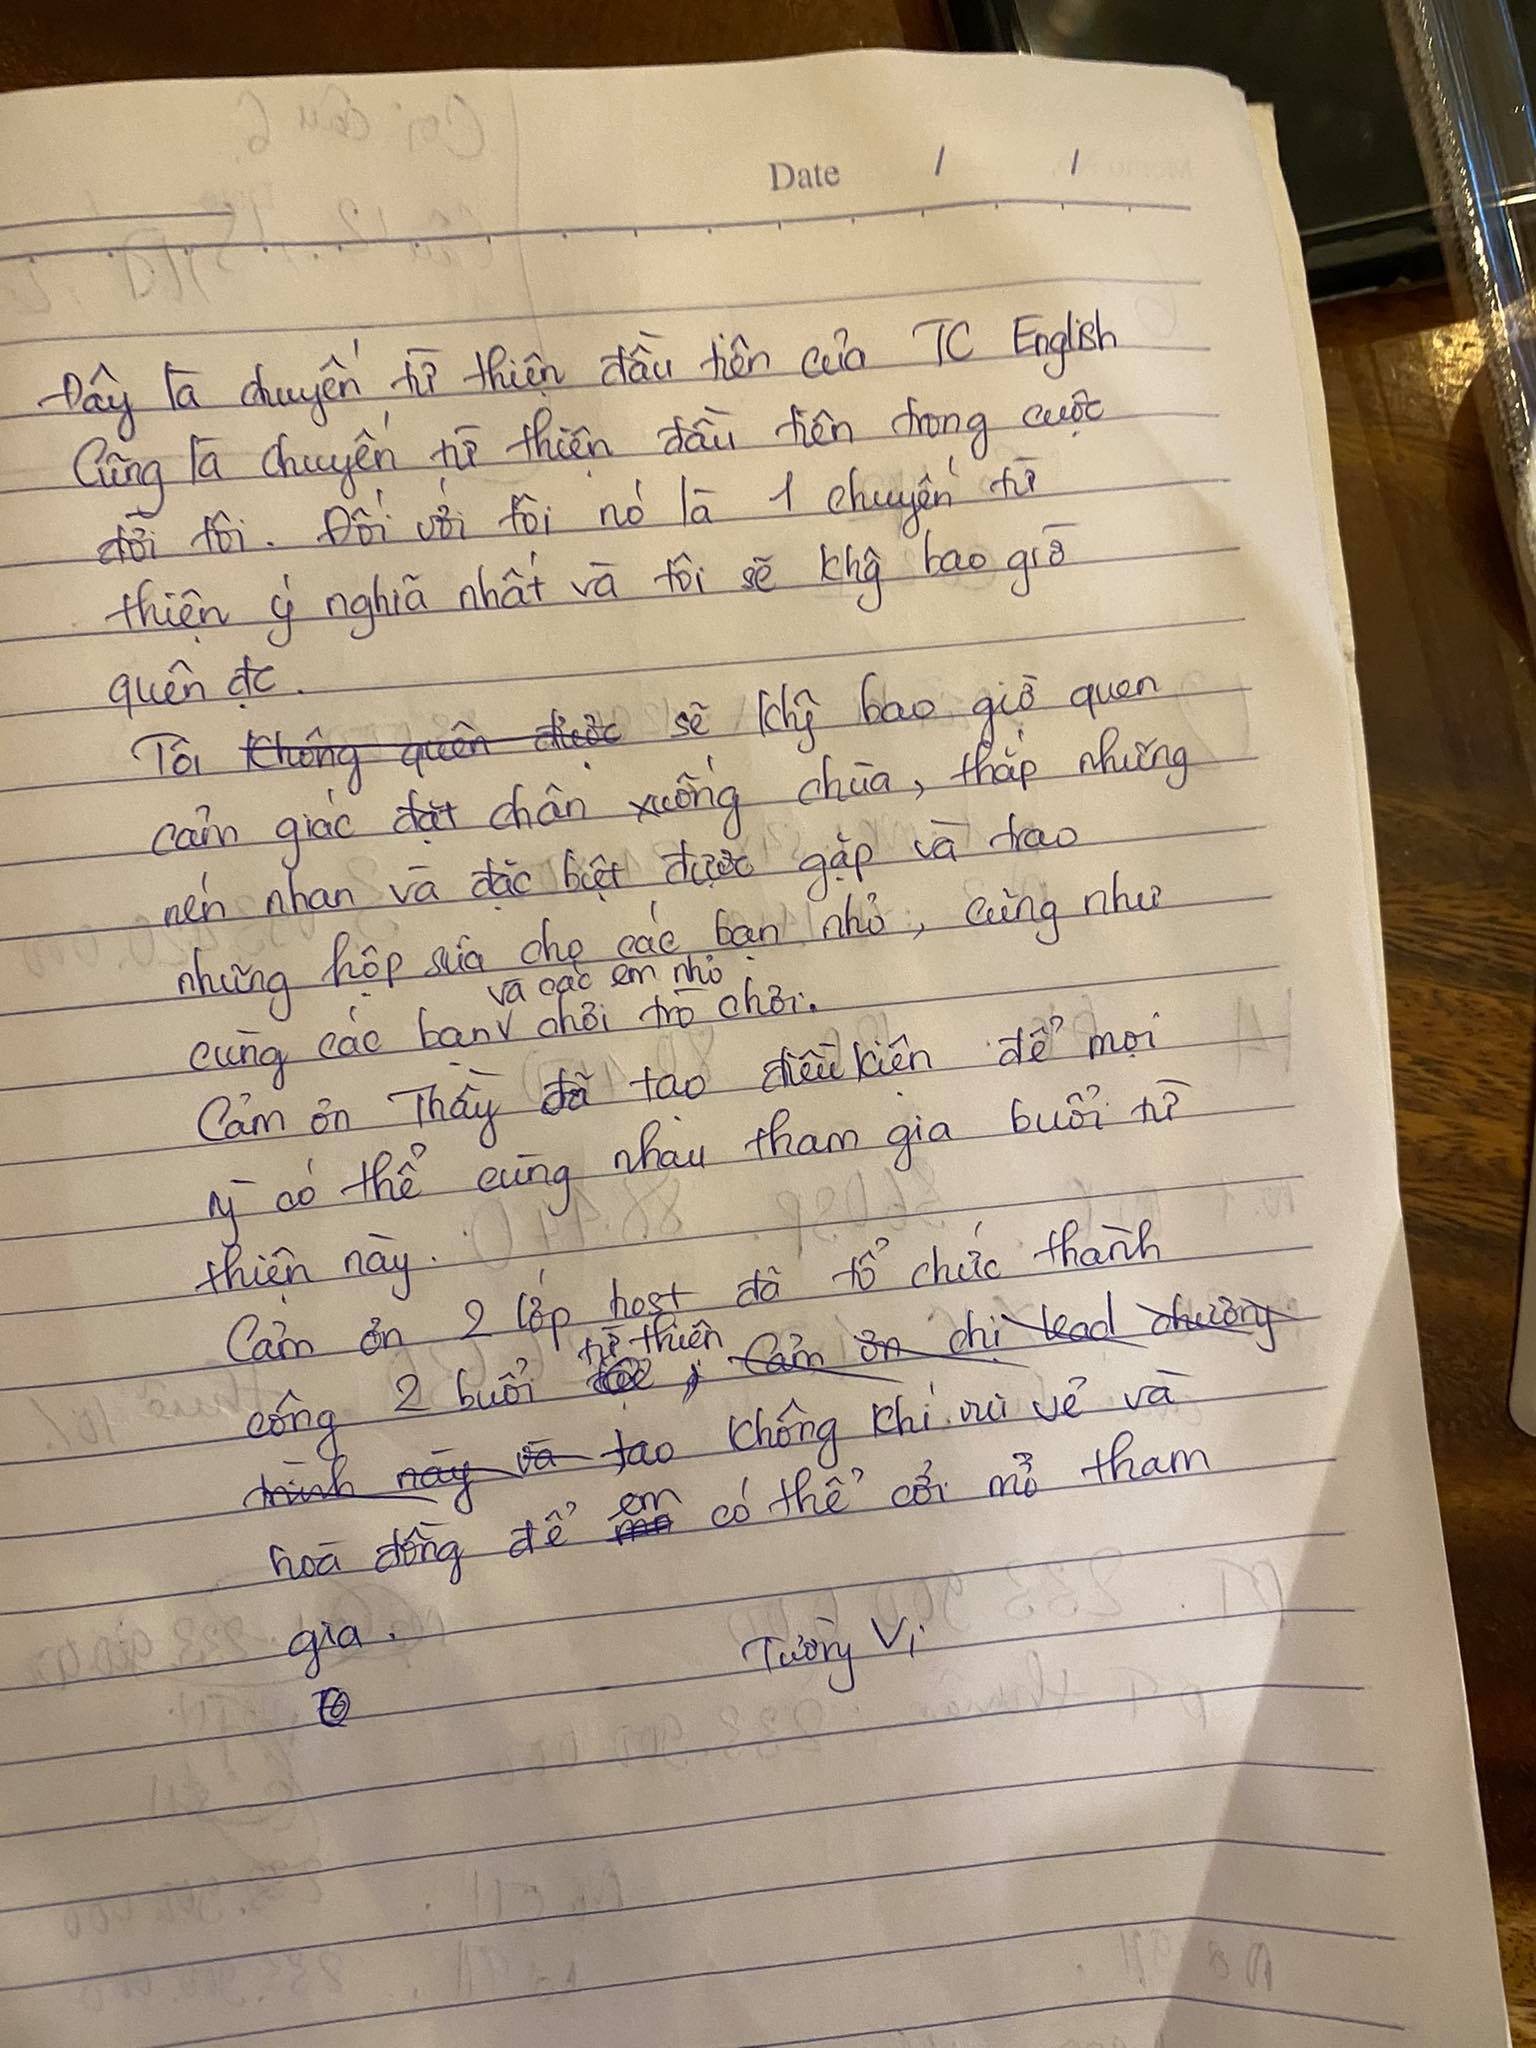 Date / /
Đây là chuyến từ thiện đầu tiên của TC English
Cũng là chuyến từ thiện đầu tiên trong cuộc
đời tôi. Đối với tôi nó là 1 chuyến từ
thiện ý nghĩa nhất và tôi sẽ khg bao giờ
quên đc.
Tôi không quên được sẽ khg bao giờ quen
cảm giác đặt chân xuống chùa, thắp những
nén nhan và đặc biệt được gặp và trao
những hộp sữa cho các bạn nhỏ, cũng như
và các em nhỏ
cùng các bạn chơi trò chơi.
Cảm ơn Thầy đã tạo điều kiện để mọi
ng có thể cùng nhau tham gia buổi từ
thiện này.
Cảm ơn 2 lớp host đã tổ chức thành
từ thiện
công 2 buổi , Cảm ơn chị lead chương
trình này và tạo không khí vui vẻ và
em
hoà đồng để có thể cởi mở tham
gia.
Tường Vi